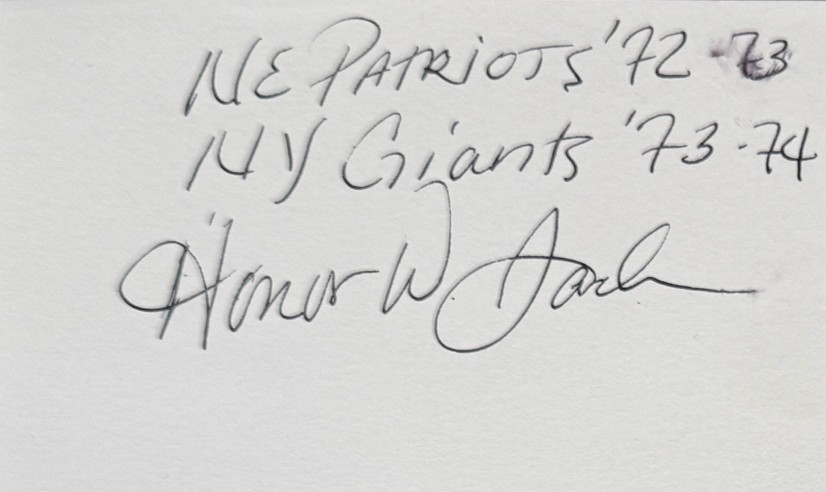 NE PATRIOTS '72-73
NY Giants '73-74
Honor W Jack